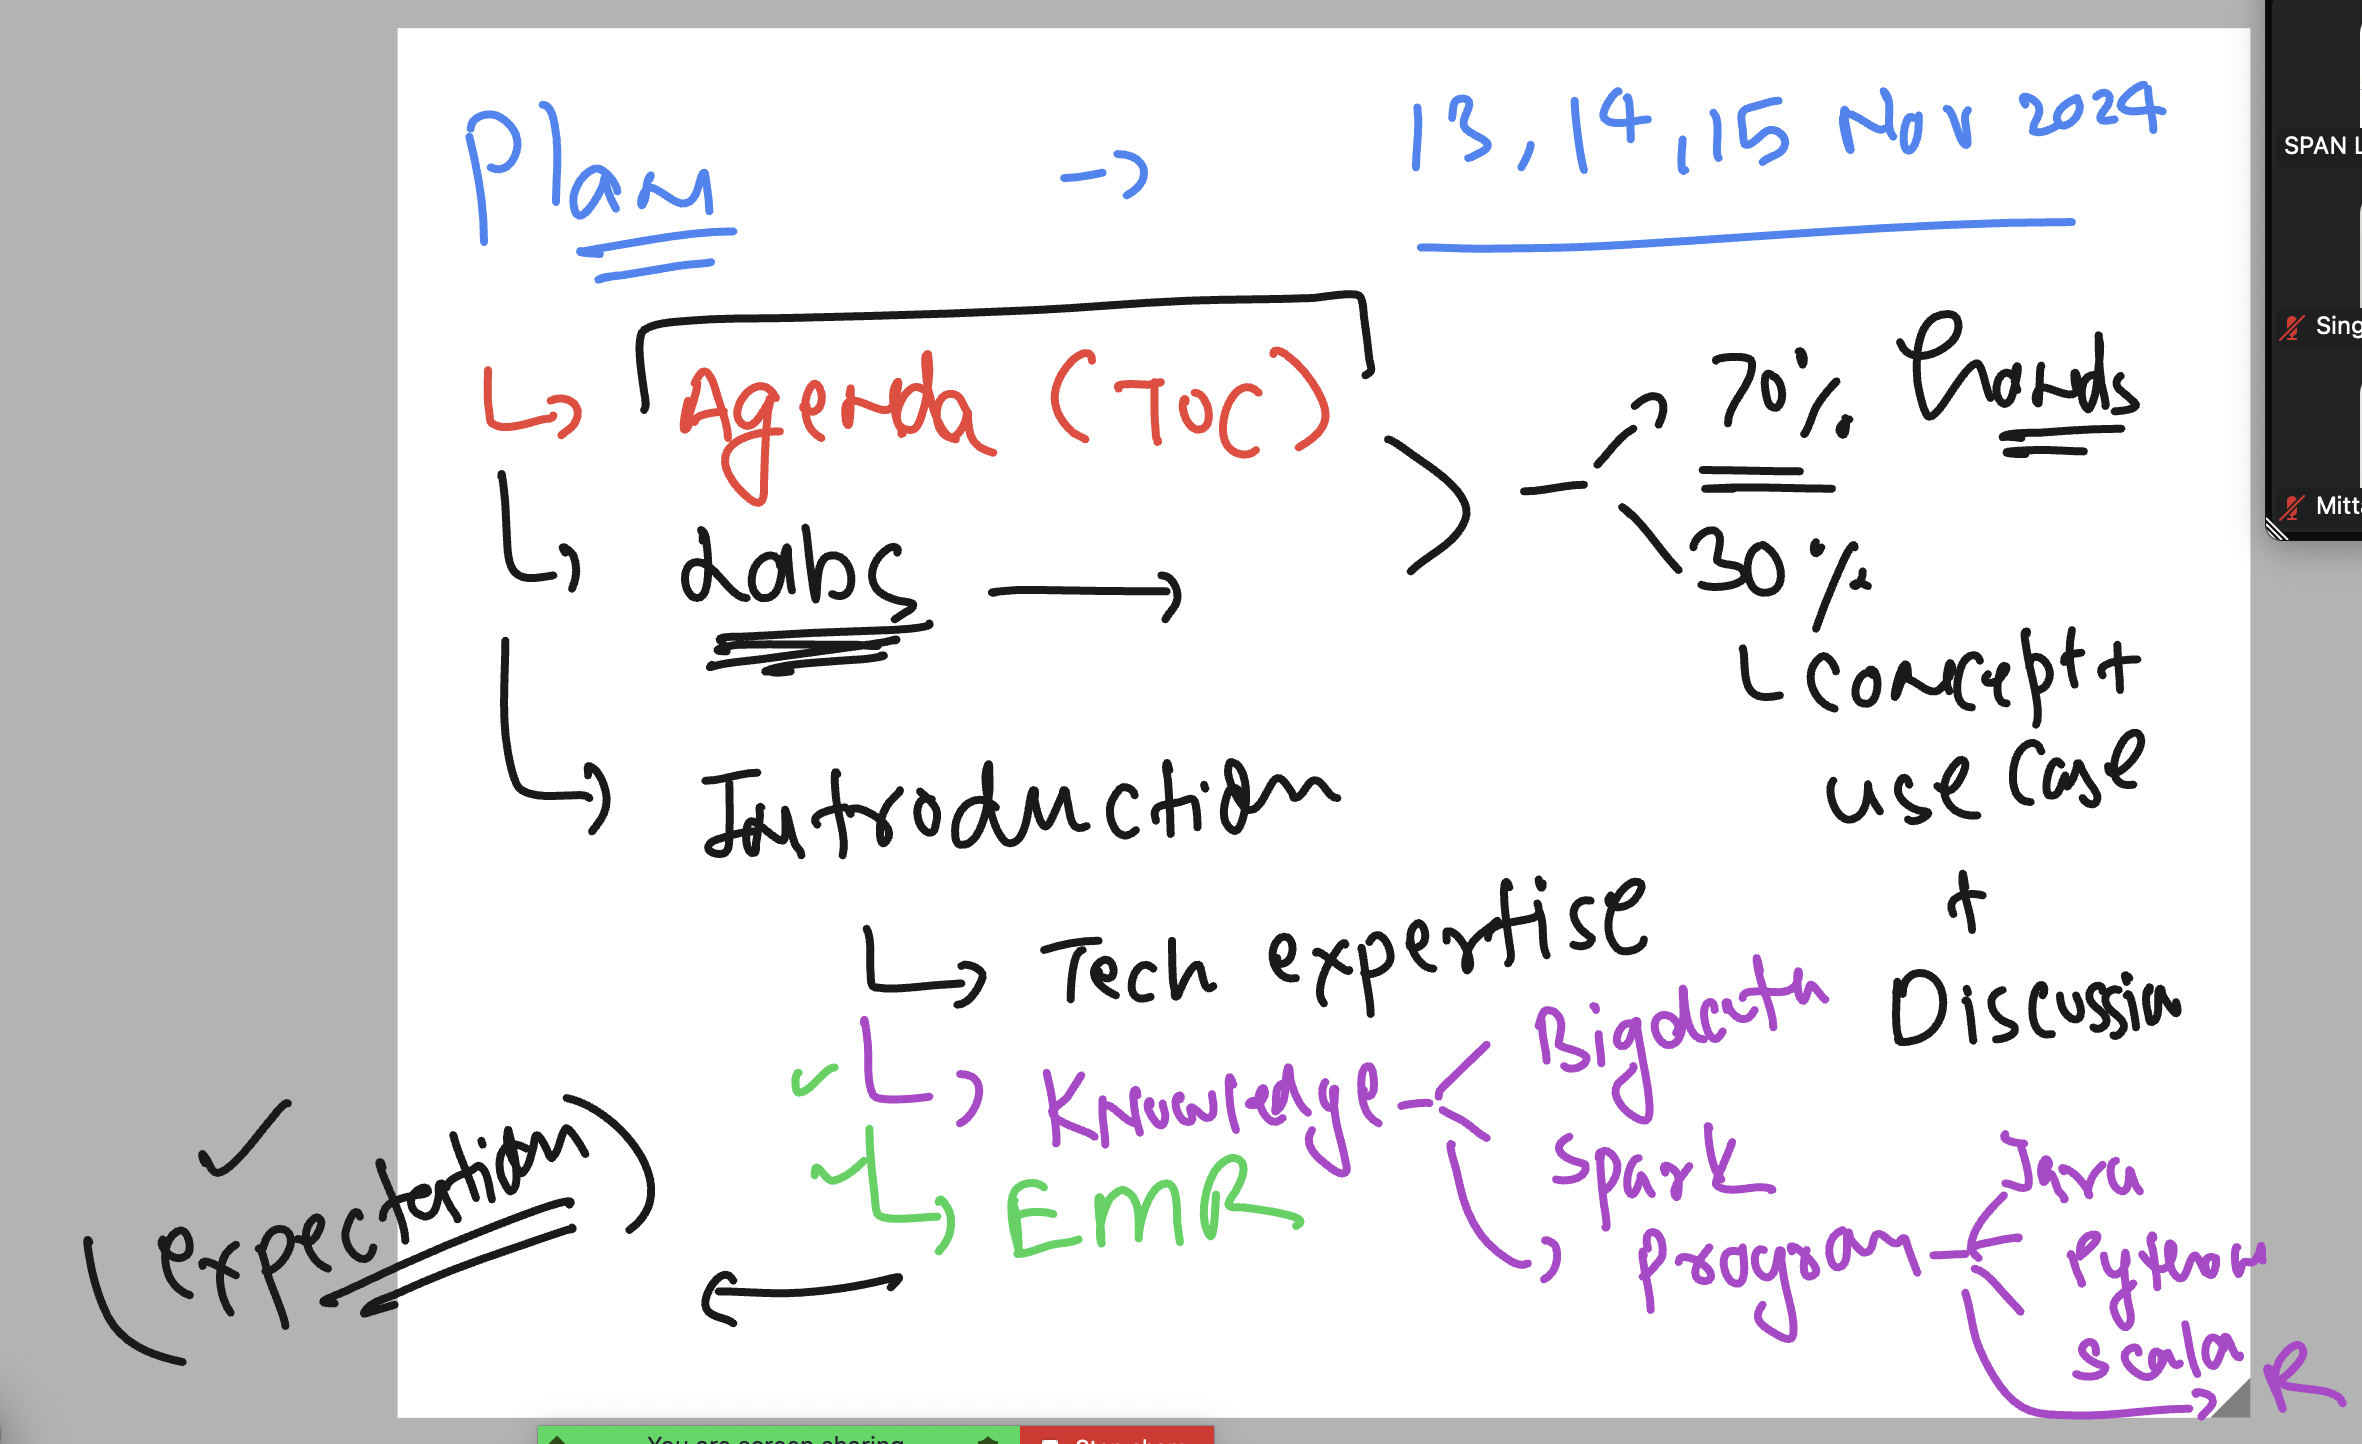 Plan -> 13, 14, 15 Nov 2024
Agenda (TOC)
70% Hands
Labs
30%
Concept +
use case
+
Discussion
Introduction
Tech expertise
Knowledge
Bigdata
Spark
Program
Java
Python
Scala
R
EMR
(Expectation)
SPAN L
Sing
Mitt
You are screen sharing